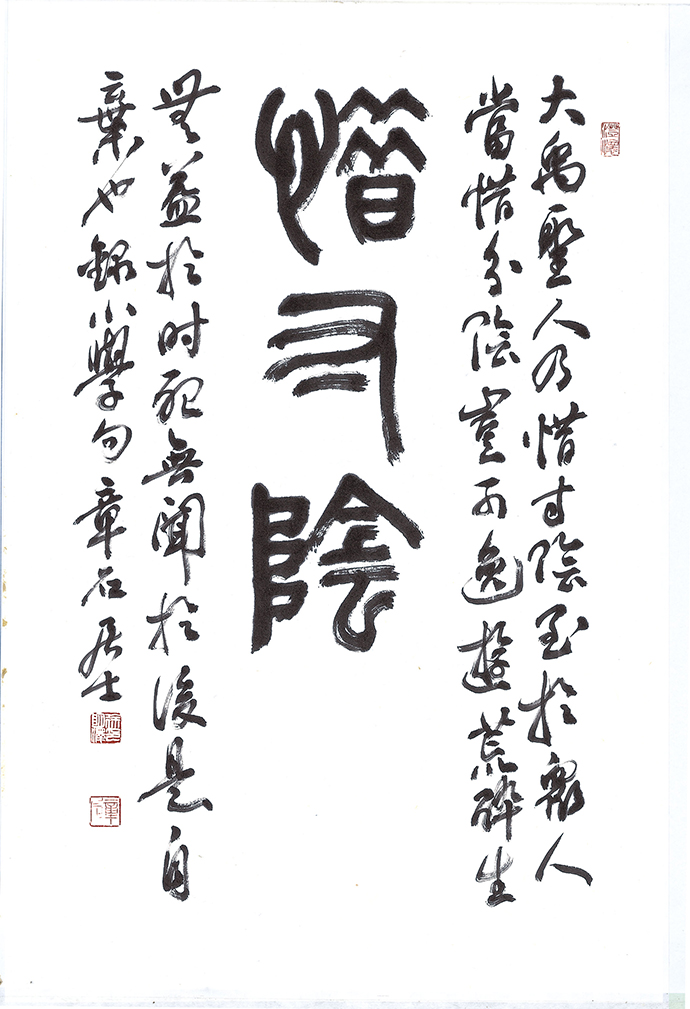 大禹聖人乃惜寸陰至於衆人
當惜分陰豈可逸遊荒醉生
惜寸陰
無益於时死無聞於後是自
棄也錄小學句章石居士